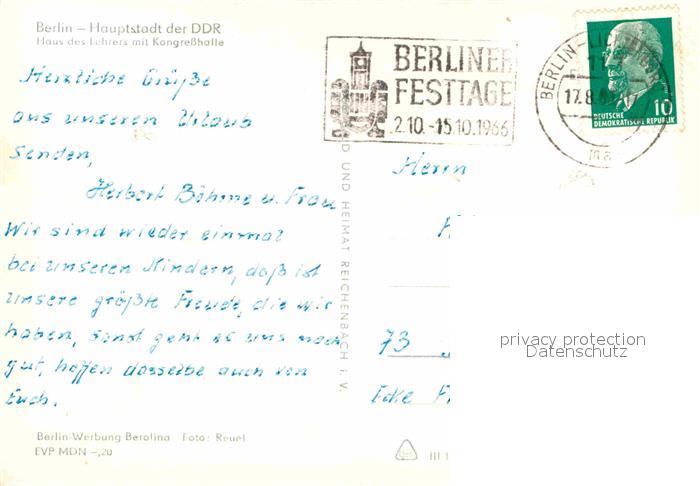 Berlin – Hauptstadt der DDR
Haus des Lehrers mit Kongreßhalle
Herzliche Grüße
aus unseren Urlaub
senden,
Herbert Böhme u. Frau
Wir sind wieder einmal
bei unseren Kindern, daß ist
unsere größte Freude, die wir
haben, sonst geht es uns noch
gut, hoffen dasselbe auch von
Euch.
Berlin-Werbung Berolina Foto: Reuel
EVP MDN –,20
BERLINER
FESTTAGE
2.10.-15.10.1966
17.8.
10
DEUTSCHE
DEMOKRATISCHE REPUBLIK
UND HEIMAT REICHENBACH i. V.
Herrn
73
Ecke
privacy protection
Datenschutz